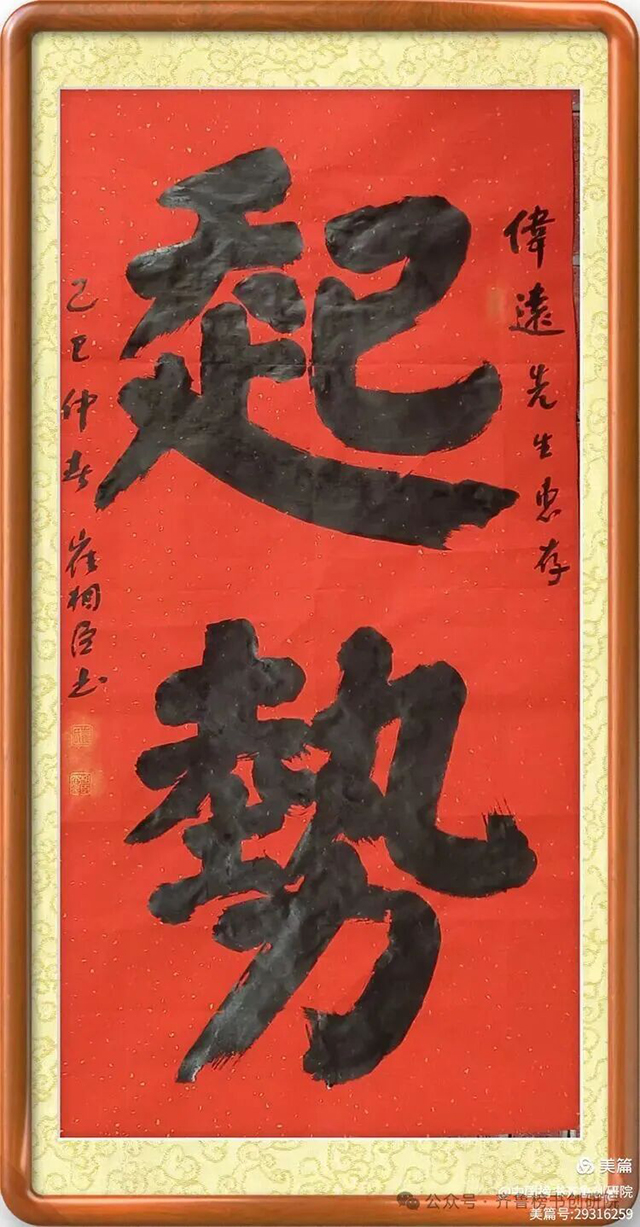 偉遠先生惠存
起
勢
乙巳仲春 崔桐臣书
美篇
公众号·齐鲁榜书创研院
美篇号:29316259